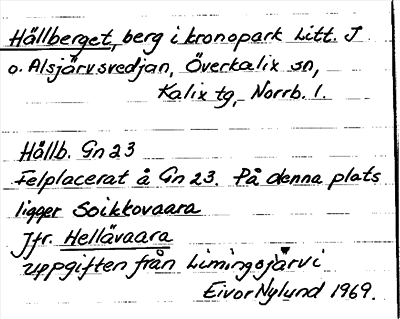 Hällberget, berg i kronopark Litt. J
o. Alsjärvsvedjan, Överkalix sn,
Kalix tg, Norrb. l.
Hållb. Gn 23
Felplacerat å Gn 23. På denna plats
ligger Soikkovaara
Jfr. Hellävaara
Uppgiften från Limingojärvi
Eivor Nylund 1969.